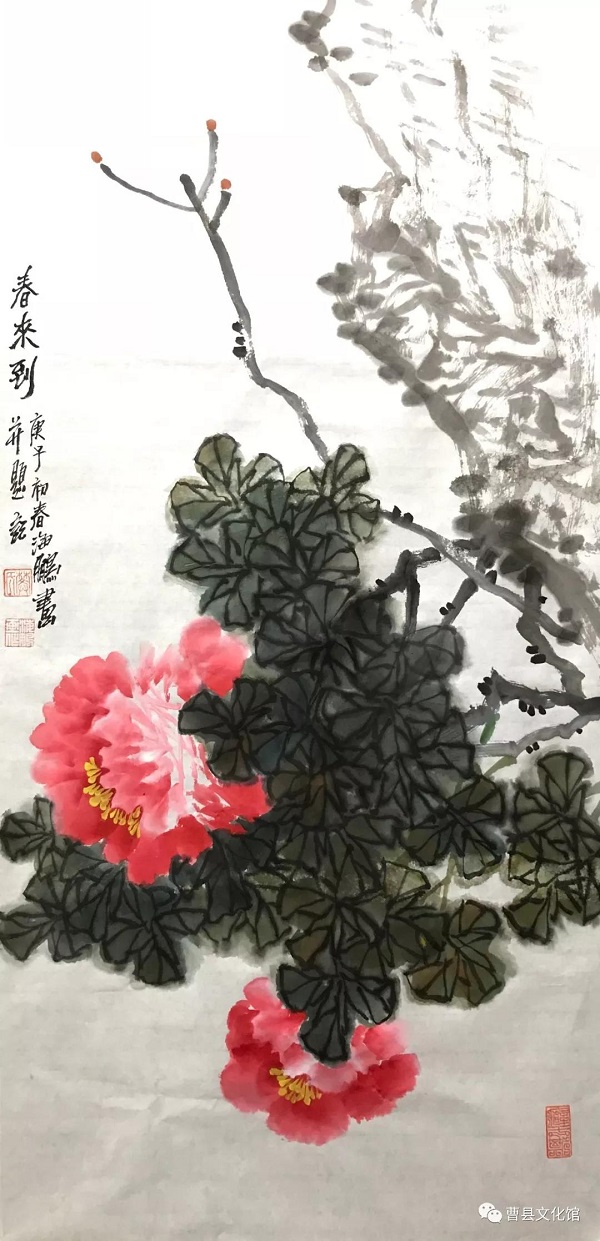 春来到
庚子初春海鹏画
并题記
曹县文化馆